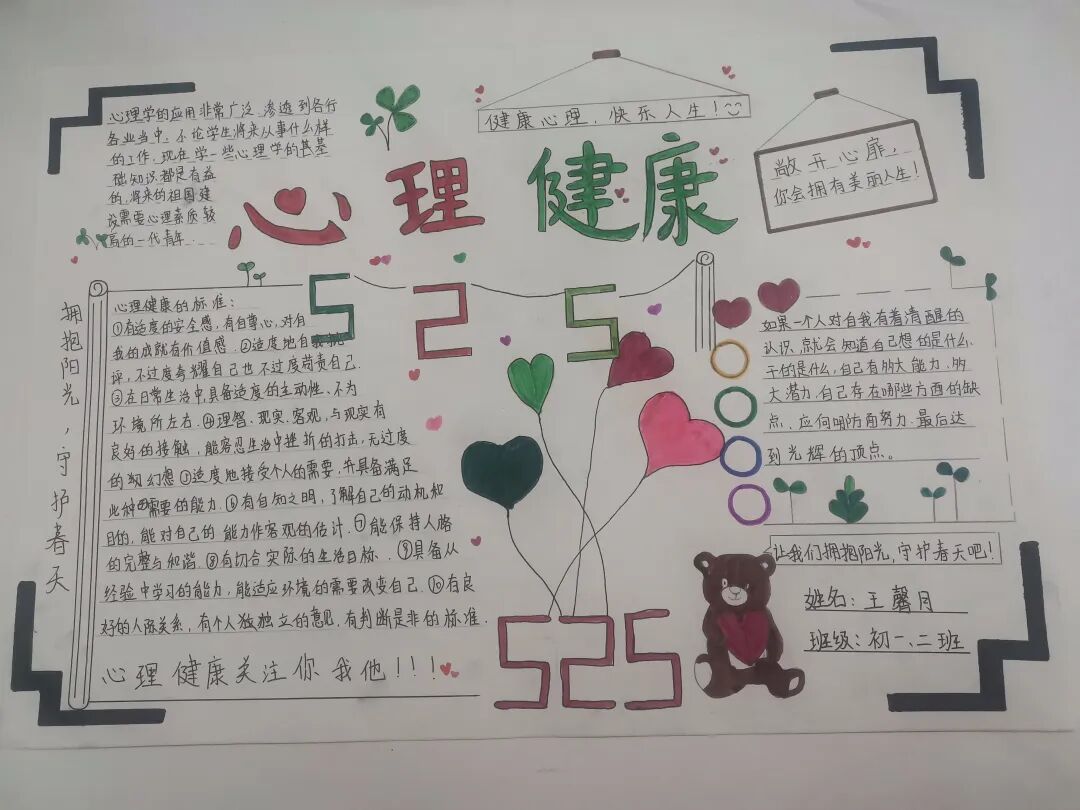 心理学的应用非常广泛渗透到各行
各业当中,不论学生将来从事什么样
的工作,现在学一些心理学的甚基
础知识都是有益
的,将来的祖国建
设需要心理素质较
高的一代青年.
健康心理,快乐人生!
敞开心扉,
你会拥有美丽人生!
心理健康
525
拥抱阳光,守护春天
心理健康的标准:
①有适度的安全感,有自尊心,对自
我的成就有价值感.②适度地自我批
评,不过度夸耀自己也不过度苛责自己.
③在日常生活中,具备适度的主动性、不为
环境所左右.④理智、现实、客观,与现实有
良好的接触,能容忍生活中挫折的打击,无过度
的幻想⑤适度地接受个人的需要,并具备满足
此种需要的能力.⑥有自知之明,了解自己的动机和
目的,能对自己的能力作客观的估计.⑦能保持人格
的完整与和谐.⑧有切合实际的生活目标.⑨具备从
经验中学习的能力,能适应环境的需要改变自己.⑩有良
好的人际关系,有个人独独立的意见,有判断是非的标准.
心理健康关注你我他!!!
如果一个人对自我有着清醒的
认识,就会知道自己想的是什么、
干的是什么,自己有多大能力、多
大潜力.自己存在哪些方面的缺
点、应向哪方面努力.最后达
到光辉的顶点。
525
让我们拥抱阳光,守护春天吧!
姓名:王馨月
班级:初一、二班